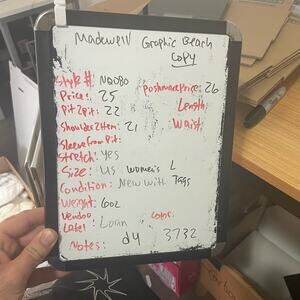 Madewell Graphic Beach
Copy
Style #: N0080 Poshmark Price: 26
Price: 25 Length:
Pit 2 pit: 22 Waist:
Shoulder 2 Hem: 21
Sleeve from Pit:
Stretch: yes
Size: US women's L
Condition: New with Tags
Weight: 6oz
Vendoo Label: Loan Color:
Notes: d4 3732